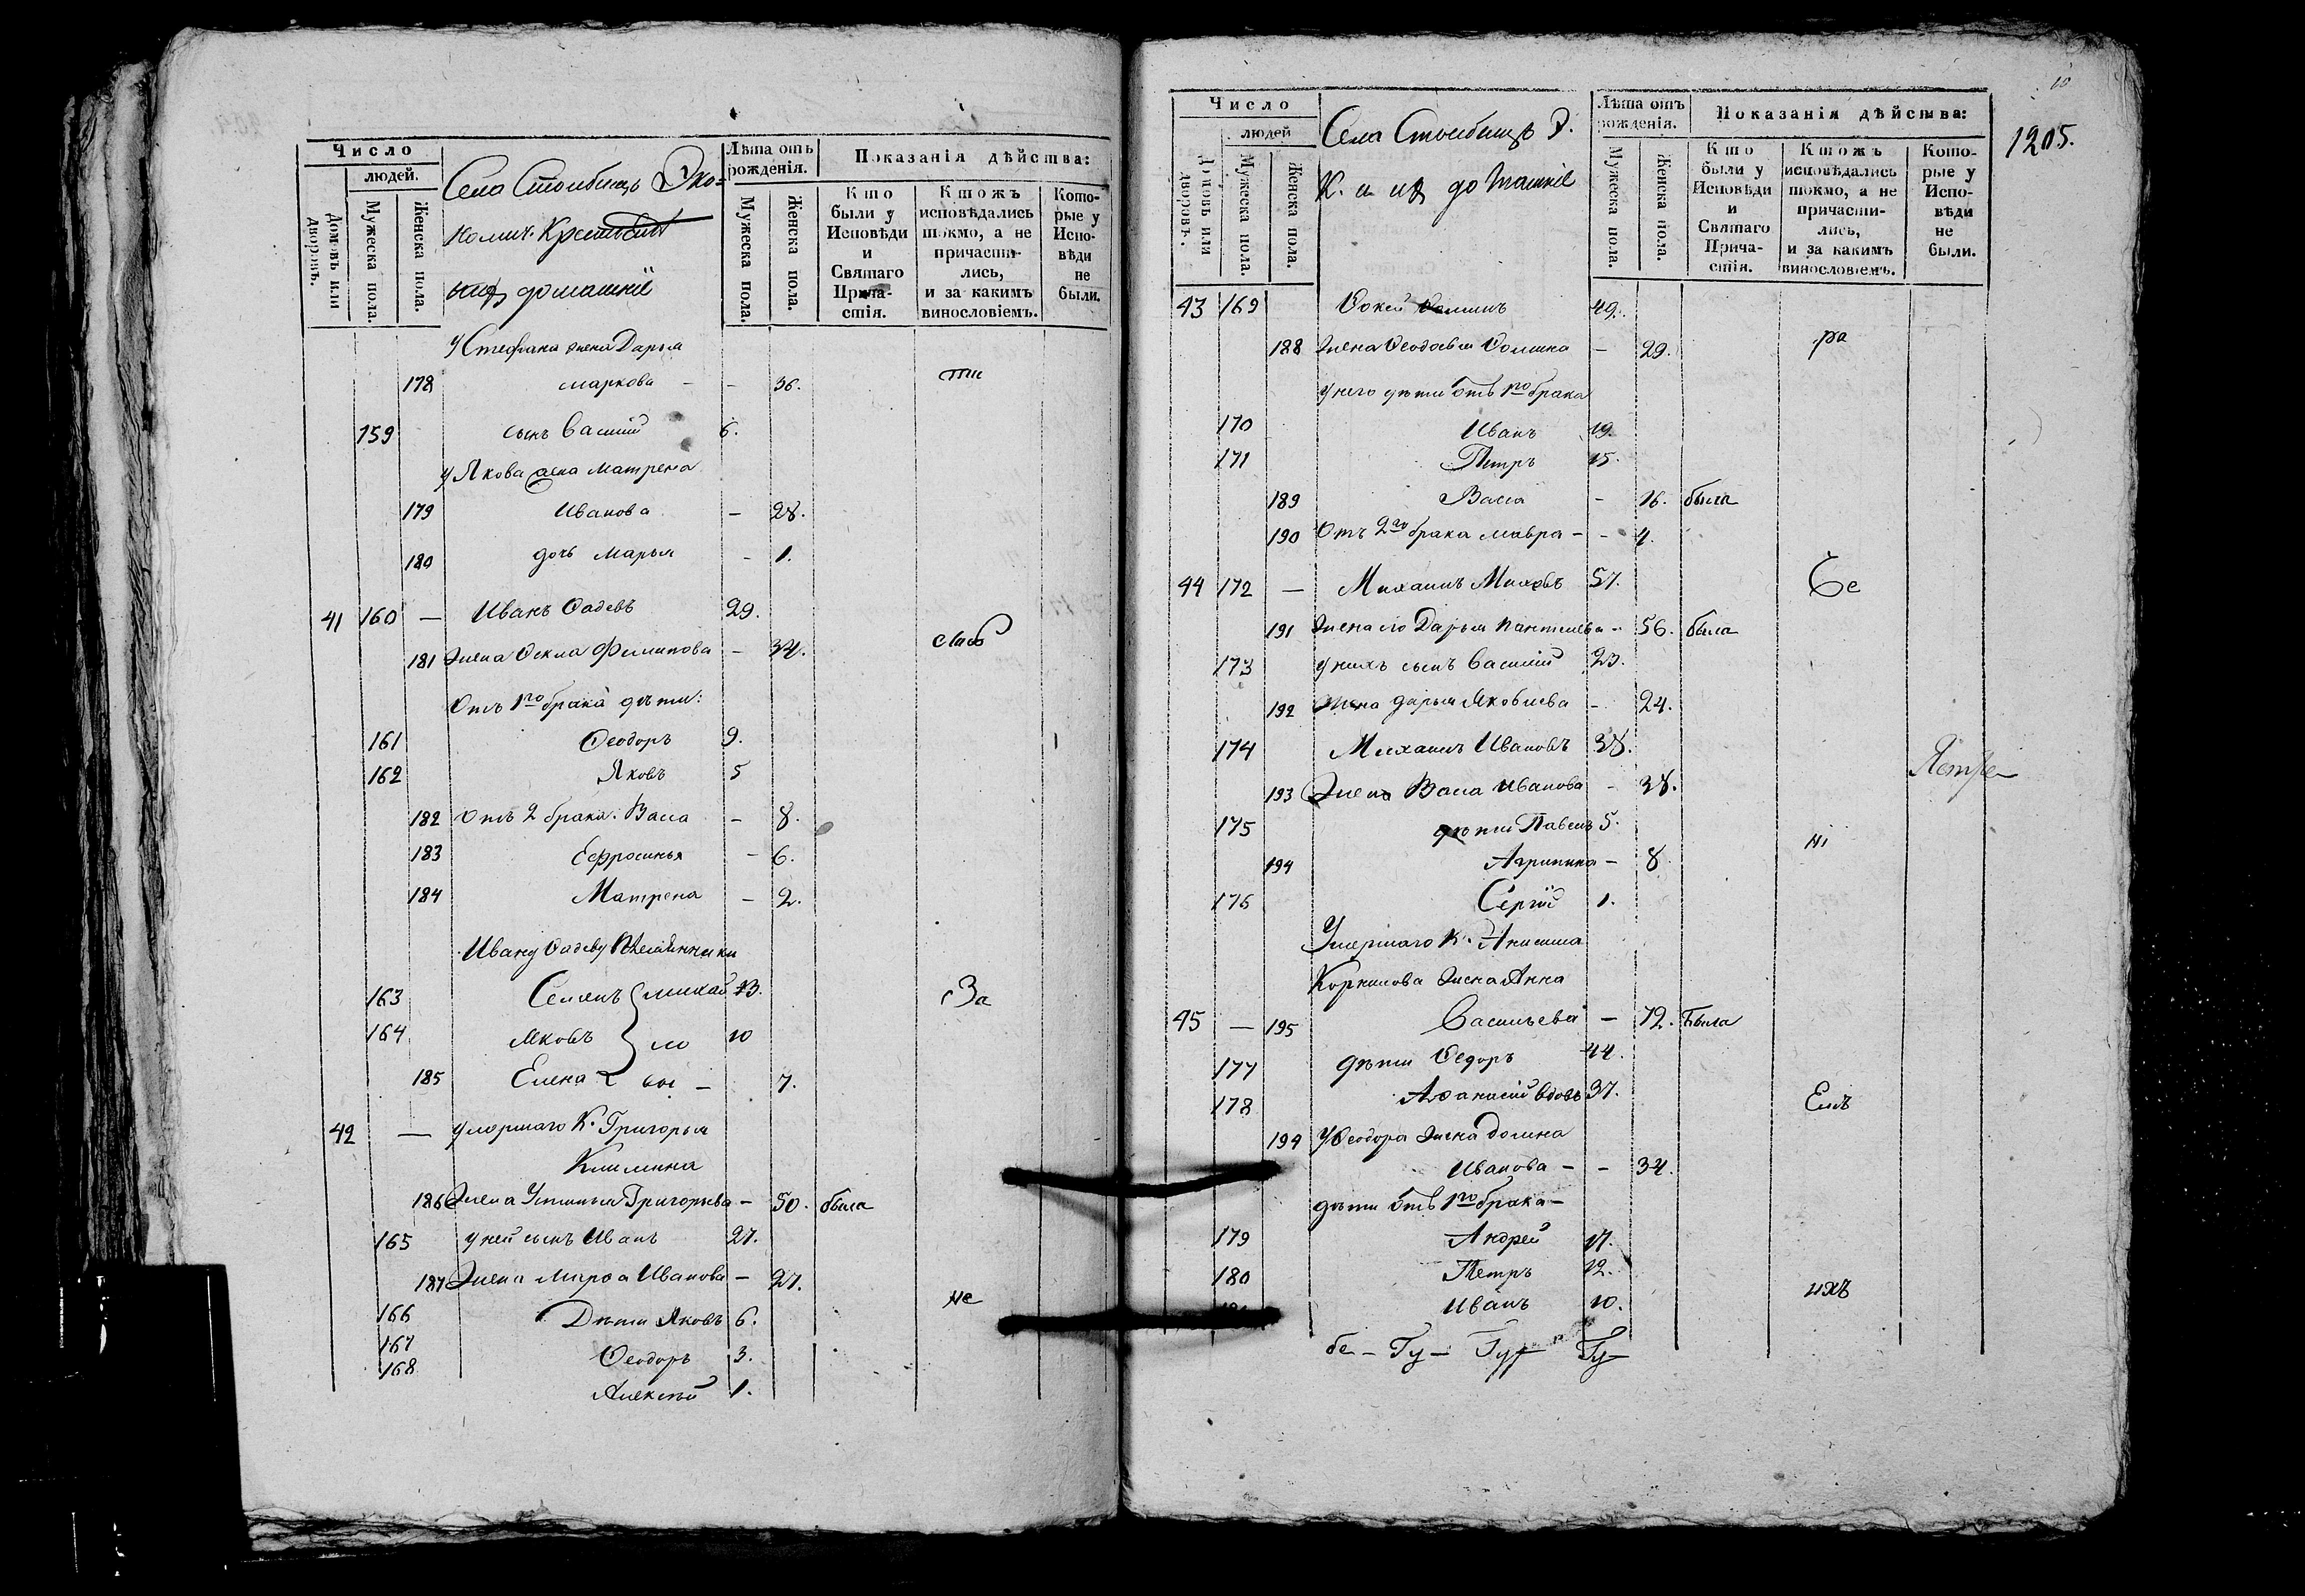 Число
людей.
Домовъ или дворовъ.
Мужеска пола.
Женска пола.
Село Столбищъ Эко-
номич. Крестьяне
ихъ домашніе
Лѣта отъ рожденія.
Мужеска пола.
Женска пола.
Показанія дѣйства:
Кто были у Исповѣди и Святаго Прича-стія.
Ктожъ исповѣдались токмо, а не причасти-лись, и за какимъ винословіемъ.
Кото-рые у Испо-вѣди не были.
У Стефана жена Дарья
178 Маркова – – 36.
159 сынъ Василій 6.
У Якова жена Матрена
179 Иванова – 28.
180 дочь Марья – 1.
41 160 — Иванъ Фадевъ 29.
181 Жена Фекла Филипова – 34.
Отъ 1го брака дѣти:
161 Феодоръ 9.
162 Яковъ 5
182 Отъ 2 брака. Васса – 8.
183 Ефросинья – 6.
184 Матрена – 2.
Ивану Фадеву племянники
163 Семенъ Михай 13. За
164 Яковъ ло 10
185 Елена вы – 7.
42 — Умершаго К. Григорья
Климина
186 Жена Устинья Григорьева – 50. была
165 У ней сынъ Иванъ 27.
187 Жена Марфа Иванова – 27.
не
166 Дѣти Яковъ 6.
167 Феодоръ 3.
168 Алексѣй 1.
10
1205.
Число
людей
Домовъ или дворовъ.
Мужеска пола.
Женска пола.
Села Столбищъ Э.
К. и ихъ домашніе
Лѣта отъ рожденія.
Мужеска пола.
Женска пола.
Показанія дѣйства:
Кто были у Исповѣди и Святаго Прича-стія.
Ктожъ исповѣдались токмо, а не причасти-лись, и за какимъ винословіемъ.
Кото-рые у Испо-вѣди не были.
43 169 Фокей 49.
188 Жена Феодосья Фомина – 29. ра
У него дѣти отъ 1го брака
170 Иванъ 19.
171 Петръ 15.
189 Васса – 16. была
190 Отъ 2го брака Мавра – – 4.
44 172 — Михаилъ 57. бе
191 Жена его Дарья Пантелева – 56. была
173 У нихъ сынъ Василій 23.
192 Жена Дарья Яковлева – 24.
174 Михаилъ Ивановъ 38.
193 Жена Васса Иванова – 38.
175 дѣти Павелъ 5.
194 Агрипина – 8
176 Сергій 1.
Умершаго К. Анисима
Корнилова жена Анна
45 — 195 Васильева – 72. Была
177 дѣти Федоръ 44.
178 Афанасій вдовъ 37.
194 У Феодора жена Домна
Иванова – – 34.
дѣти отъ 1го брака –
179 Андрей 17.
180 Петръ 12.
ихъ
Иванъ 10.